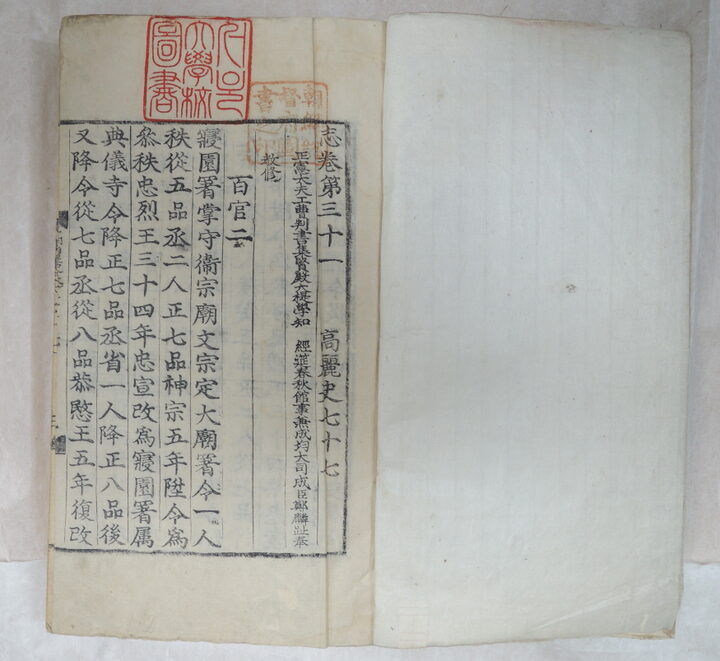 서울
大學校
圖書
志卷第三十一 高麗史七十七
正憲大夫工曹判書集賢殿大提學知 經筵春秋館事兼成均大司成臣鄭麟趾奉
敎修
百官二
寢園署掌守衛宗廟文宗定大廟署令一人
秩從五品丞二人正七品神宗五年陞令爲
叅秩忠烈王三十四年忠宣改爲寢園署属
典儀寺令降正七品丞省一人降正八品後
又降令從七品丞從八品恭愍王五年復改